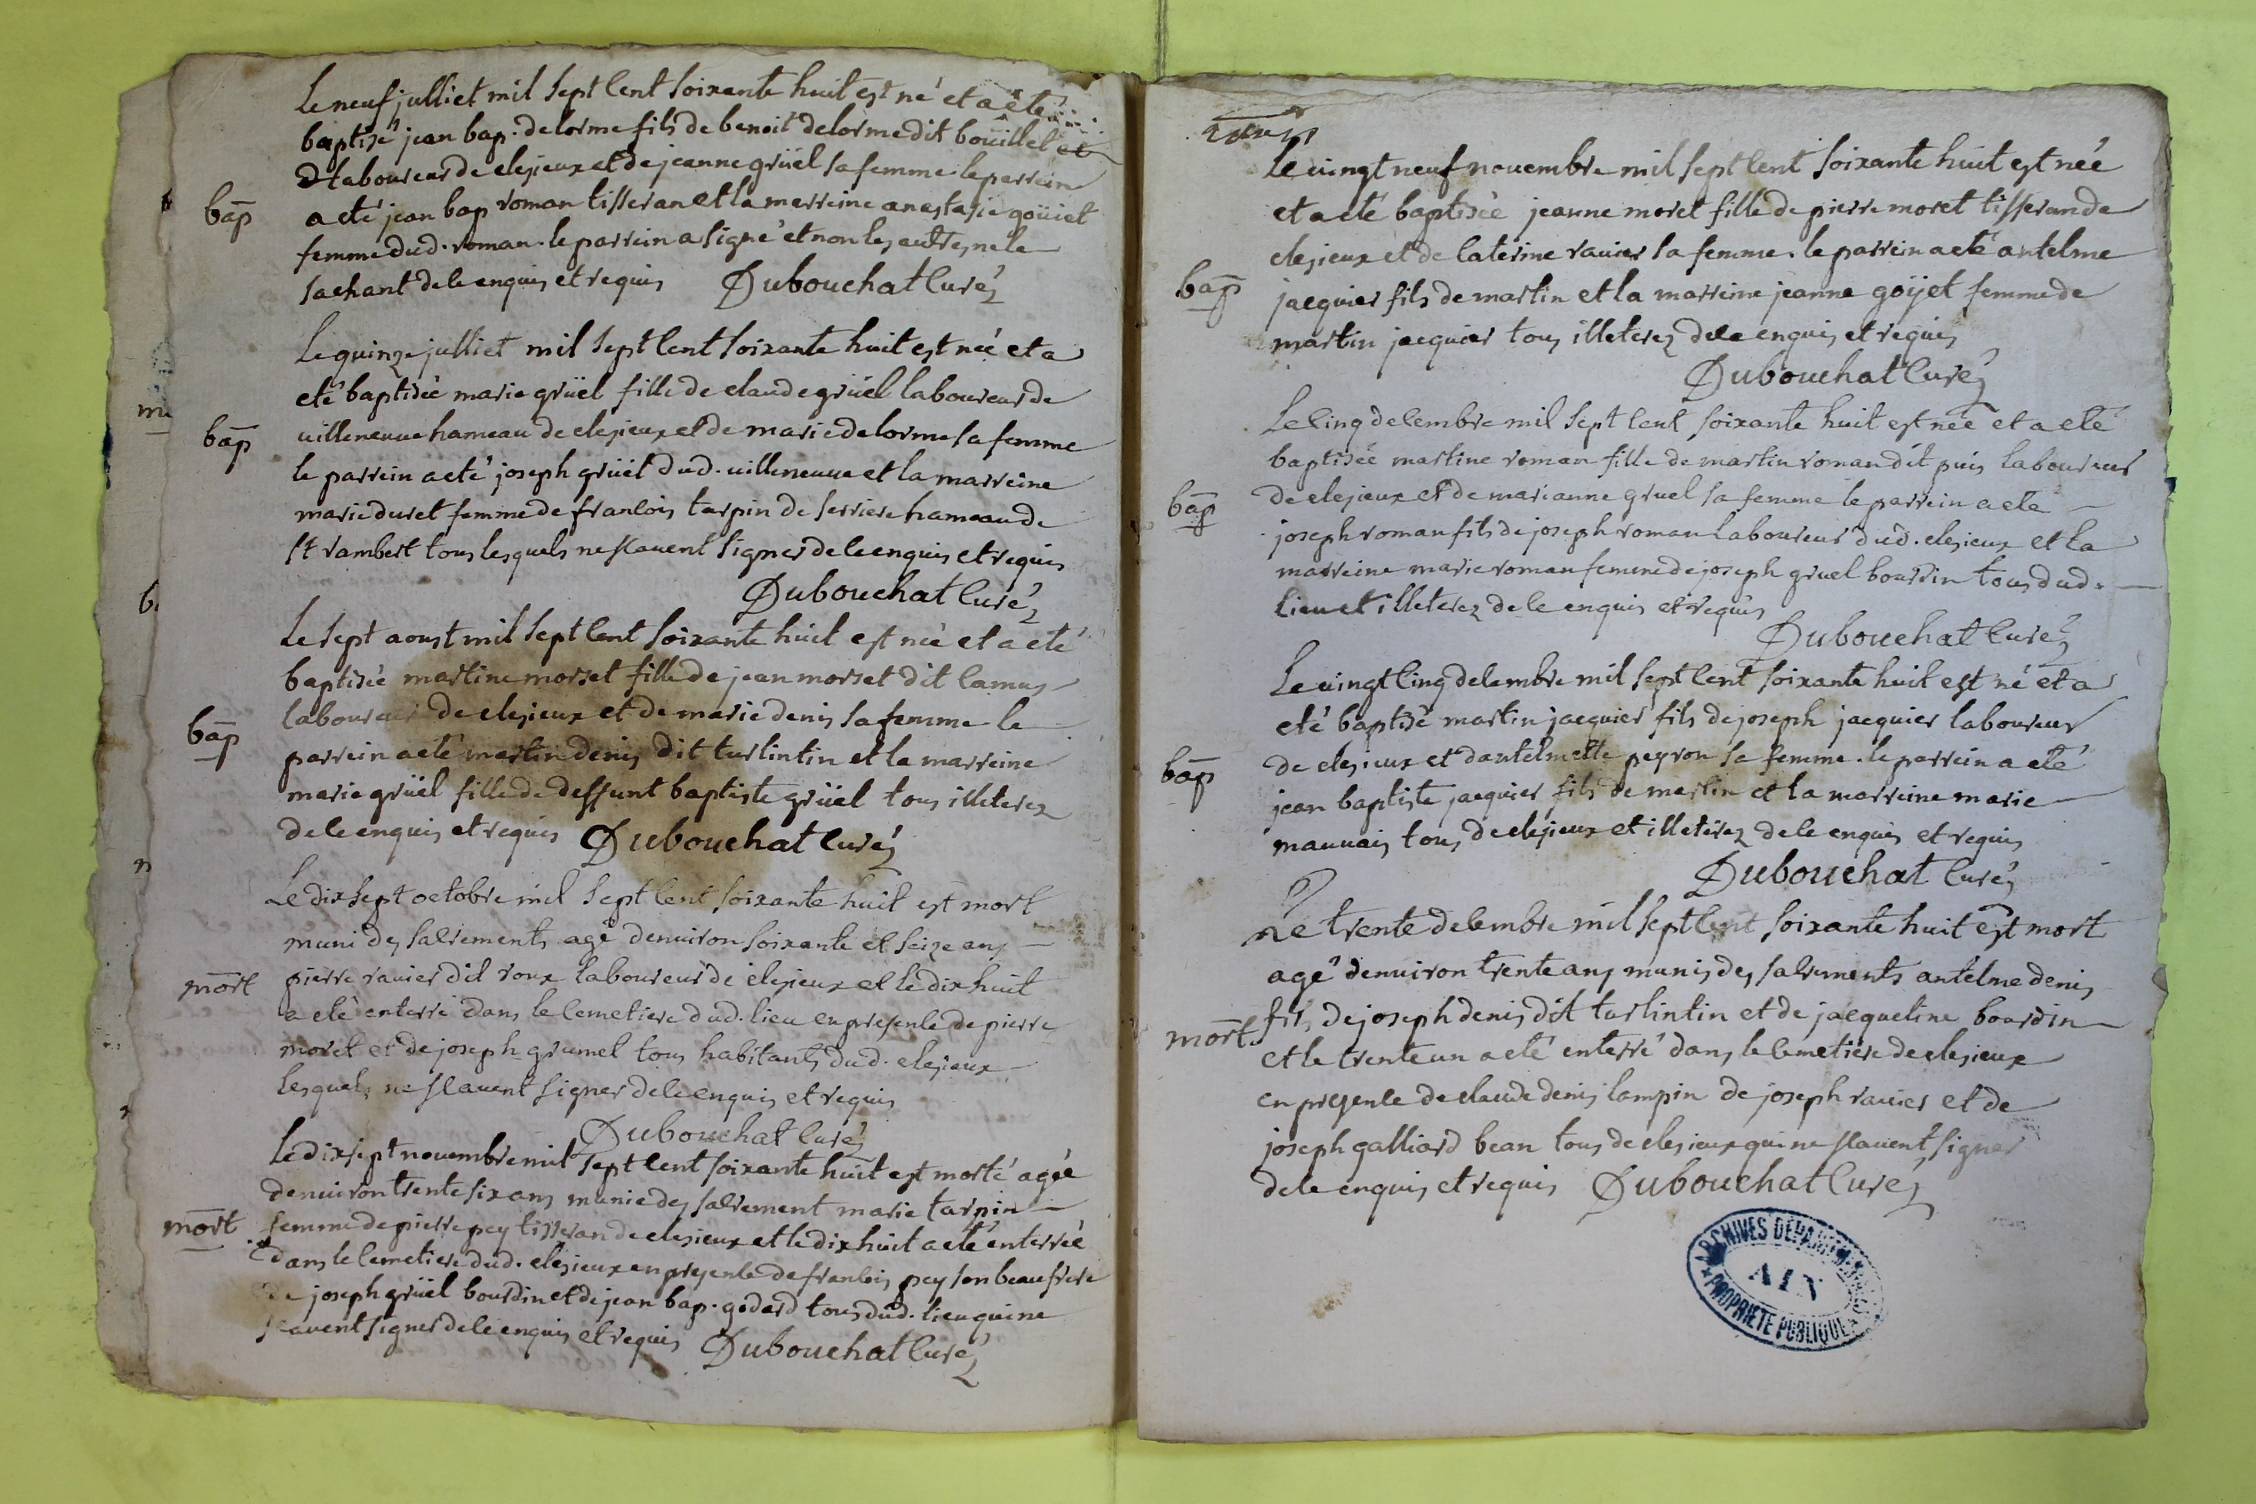 Le neuf julliet mil sept cent soixante huit est né et a été
baptisé jean bap. delorme fils de benoit delorme dit bouillet et
laboureur de clesieux et de jeanne grüel sa femme le parrein
bap
a eté jean bap roman tisseran et la marreine anastasie goüiet
femme dud. roman. le parrein a signé et non les autres ne le
sachant de ce enquis et requis Dubouchat Curé
Le quinze julliet mil sept cent soixante huit est née et a
eté baptisée marie grüel fille de claude grüel laboureur de
bap
villeneuve hameau de clesieux et de marie delorme sa femme
le parrein a eté joseph grüel dud. villeneuve et la marreine
marie duret femme de francois tarpin de serriere hameau de
st rambert tous lesquels ne scavent signer de ce enquis et requis
Dubouchat Curé
Le sept aoust mil sept cent soixante huit est née et a eté
baptisée martine morset fille de jean morset dit camus
laboureur de clesieux et de marie denis sa femme le
bap
parrein a eté martin denis dit turlintin et la marreine
marie grüel fille de deffunt baptiste grüel tous illeterez
de ce enquis et requis Dubouchat Curé
Le dix sept octobre mil sept cent soixante huit est mort
muni des sacrements agé denviron soixante et seize ans
mort
pierre ravier dit roux laboureur de clesieux et le dix huit
a eté enterré dans le cemetiere dud. lieu en presence de pierre
moret et de joseph grumel tous habitants dud. clesieux
lesquels ne scavent signer de ce enquis et requis
Dubouchat Curé
Le dix sept novembre mil sept cent soixante huit est morte agée
denviron trente six ans munie des sacrement marie tarpin
mort
femme de pierre pey tisseran de clesieux et le dix huit a eté enterrée
dans le cemetiere dud. clesieux en presence de francois pey son beau frere
de joseph grüel bourdin et de jean bap. godard tous dud. lieu qui ne
scavent signer de ce enquis et requis Dubouchat Curé
Le vingt neuf novembre mil sept cent soixante huit est née
et a eté baptisée jeanne moret fille de pierre moret tisseran de
clesieux et de caterine ravier sa femme. le parrein a eté antelme
bap
jacquier fils de martin et la marreine jeanne goÿet femme de
martin jacquier tous illeterez de ce enquis et requis
Dubouchat Curé
Le cinq decembre mil sept cent soixante huit est née et a eté
baptisée martine roman fille de martin roman dit puis laboureur
bap
de clesieux et de marianne gruel sa femme le parrein a eté
joseph roman fils de joseph roman laboureur dud. clesieux et la
marreine marie roman femme de joseph gruel bourdin tous dud.
lieu et illeterez de ce enquis et requis
Dubouchat Curé
Le vingt cinq decembre mil sept cent soixante huit est né et a
eté baptisé martin jacquier fils de joseph jacquier laboureur
bap
de clesieux et dantelmette peyron sa femme. le parrein a eté
jean baptiste jacquier fils de martin et la marreine marie
mauvais tous de clesieux et illeterez de ce enquis et requis
Dubouchat Curé
Le trente decembre mil sept cent soixante huit est mort
agé denviron trente ans munis des sacrements antelme denis
mort.
fils de joseph denis dit turlintin et de jacqueline bourdin
et le trente un a eté enterré dans le cemetiere de clesieux
en presence de claude denis lampin de joseph ravier et de
joseph galliard bean tous de clesieux qui ne scavent signer
de ce enquis et requis Dubouchat Curé
ARCHIVES DÉPARTEMENTALES
AIN
PROPRIÉTÉ PUBLIQUE